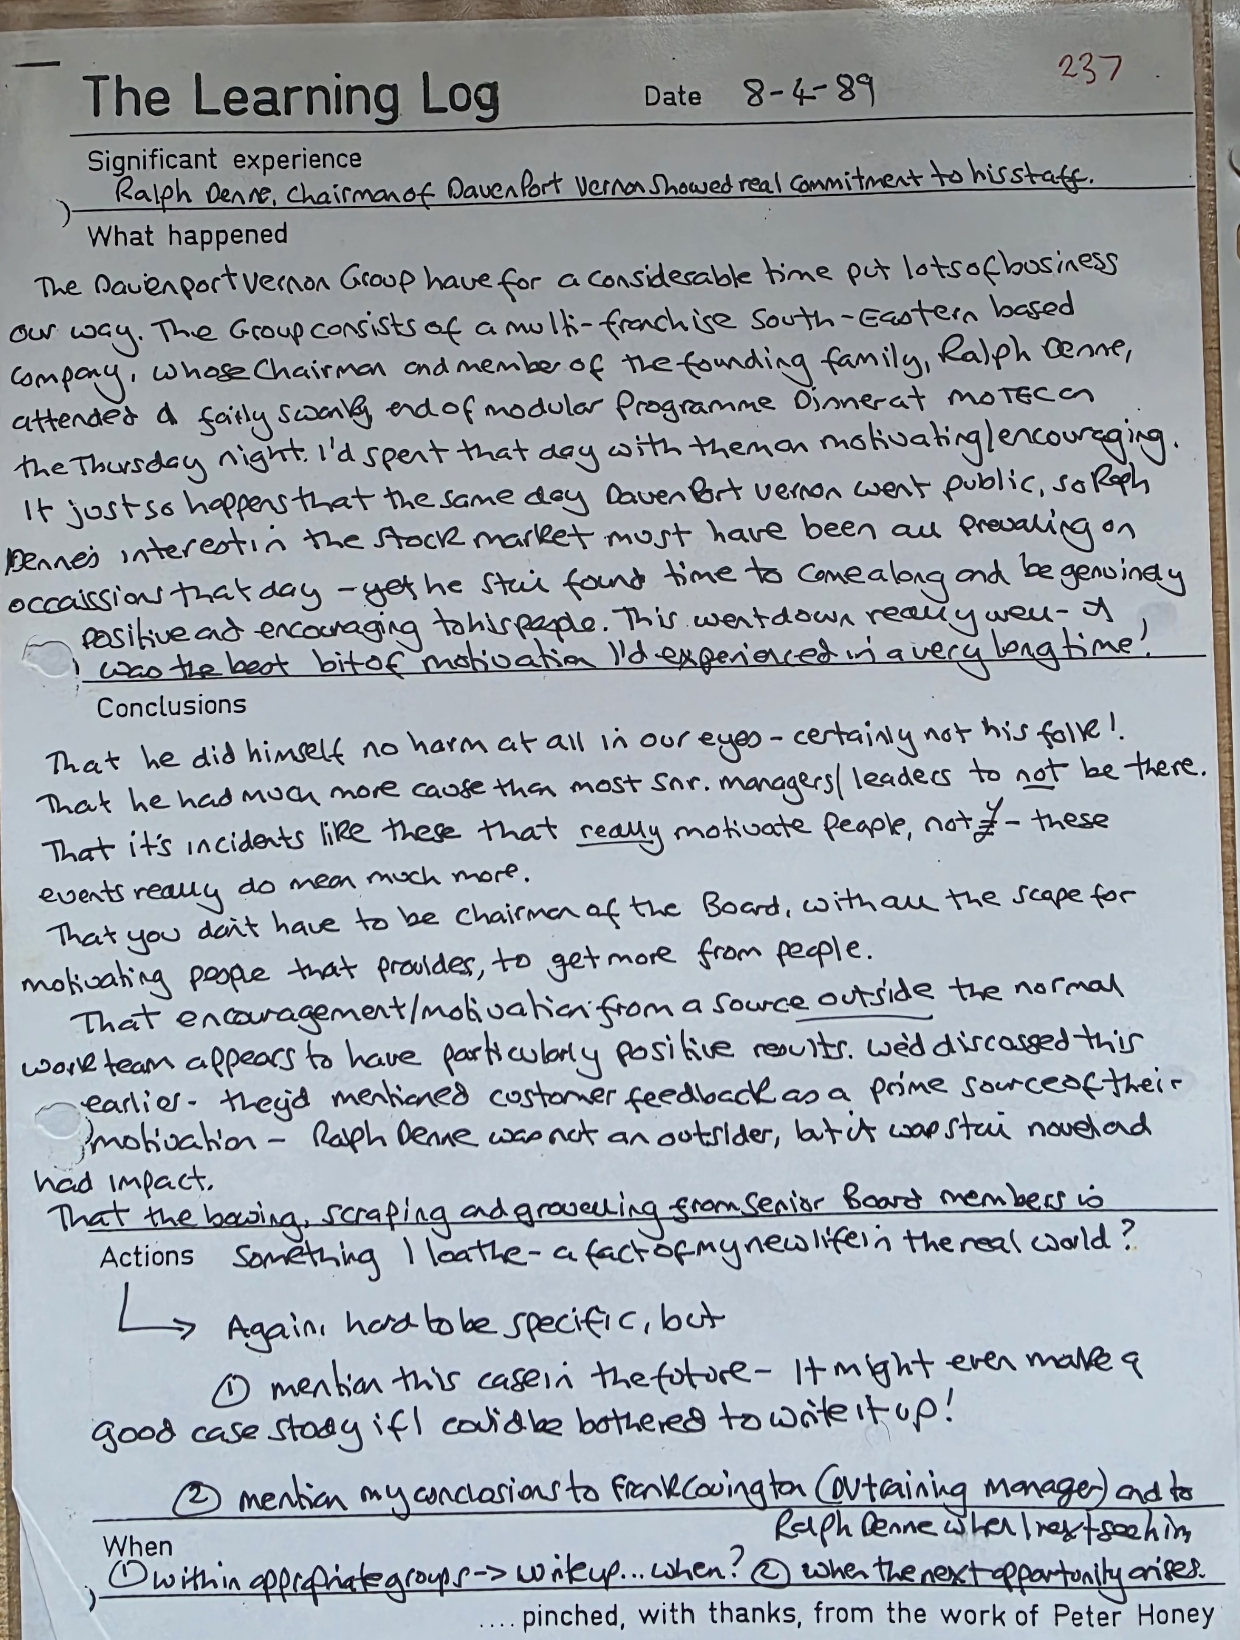 237
The Learning Log Date 8-4-89
Significant experience
Ralph Denne, Chairman of Davenport Vernon showed real commitment to his staff.
What happened
The Davenport Vernon Group have for a considerable time put lots of business
our way. The Group consists of a multi-franchise South-Eastern based
company, whose Chairman and member of the founding family, Ralph Denne,
attended a faily swanky end of modular Programme Dinner at MOTEC on
the Thursday night. I'd spent that day with them on motivating/encouraging.
It just so happens that the same day Davenport Vernon went public, so Raph
Denne's interest in the stock market must have been all prevaling on
occaissions that day - yet he still found time to come along and be genuinely
positive and encouraging to his people. This went down really well - it
was the best bit of motivation I'd experienced in a very long time!
Conclusions
That he did himself no harm at all in our eyes - certainly not his folk!
That he had much more cause than most snr. managers/leaders to not be there.
That it's incidents like these that really motivate people, not £ - these
events really do mean much more.
That you don't have to be Chairman of the Board, with all the scope for
motivating people that provides, to get more from people.
That encouragement/motivation from a source outside the normal
work team appears to have particularly positive results. We'd discussed this
earlier - they'd mentioned customer feedback as a prime source of their
motivation - Ralph Denne was not an outsider, but it was still novel and
had impact.
That the bowing, scraping and grovelling from senior Board members is
Actions something I loathe - a fact of my new life in the real world?
Again, hard to be specific, but
① mention this case in the future - It might even make a
good case study if I could be bothered to write it up!
② mention my conclusions to Frank Covington (DV training manager) and to
Ralph Denne when I next see him
When
① within appropriate groups -> write up... when? ② when the next opportunity arises.
.... pinched, with thanks, from the work of Peter Honey